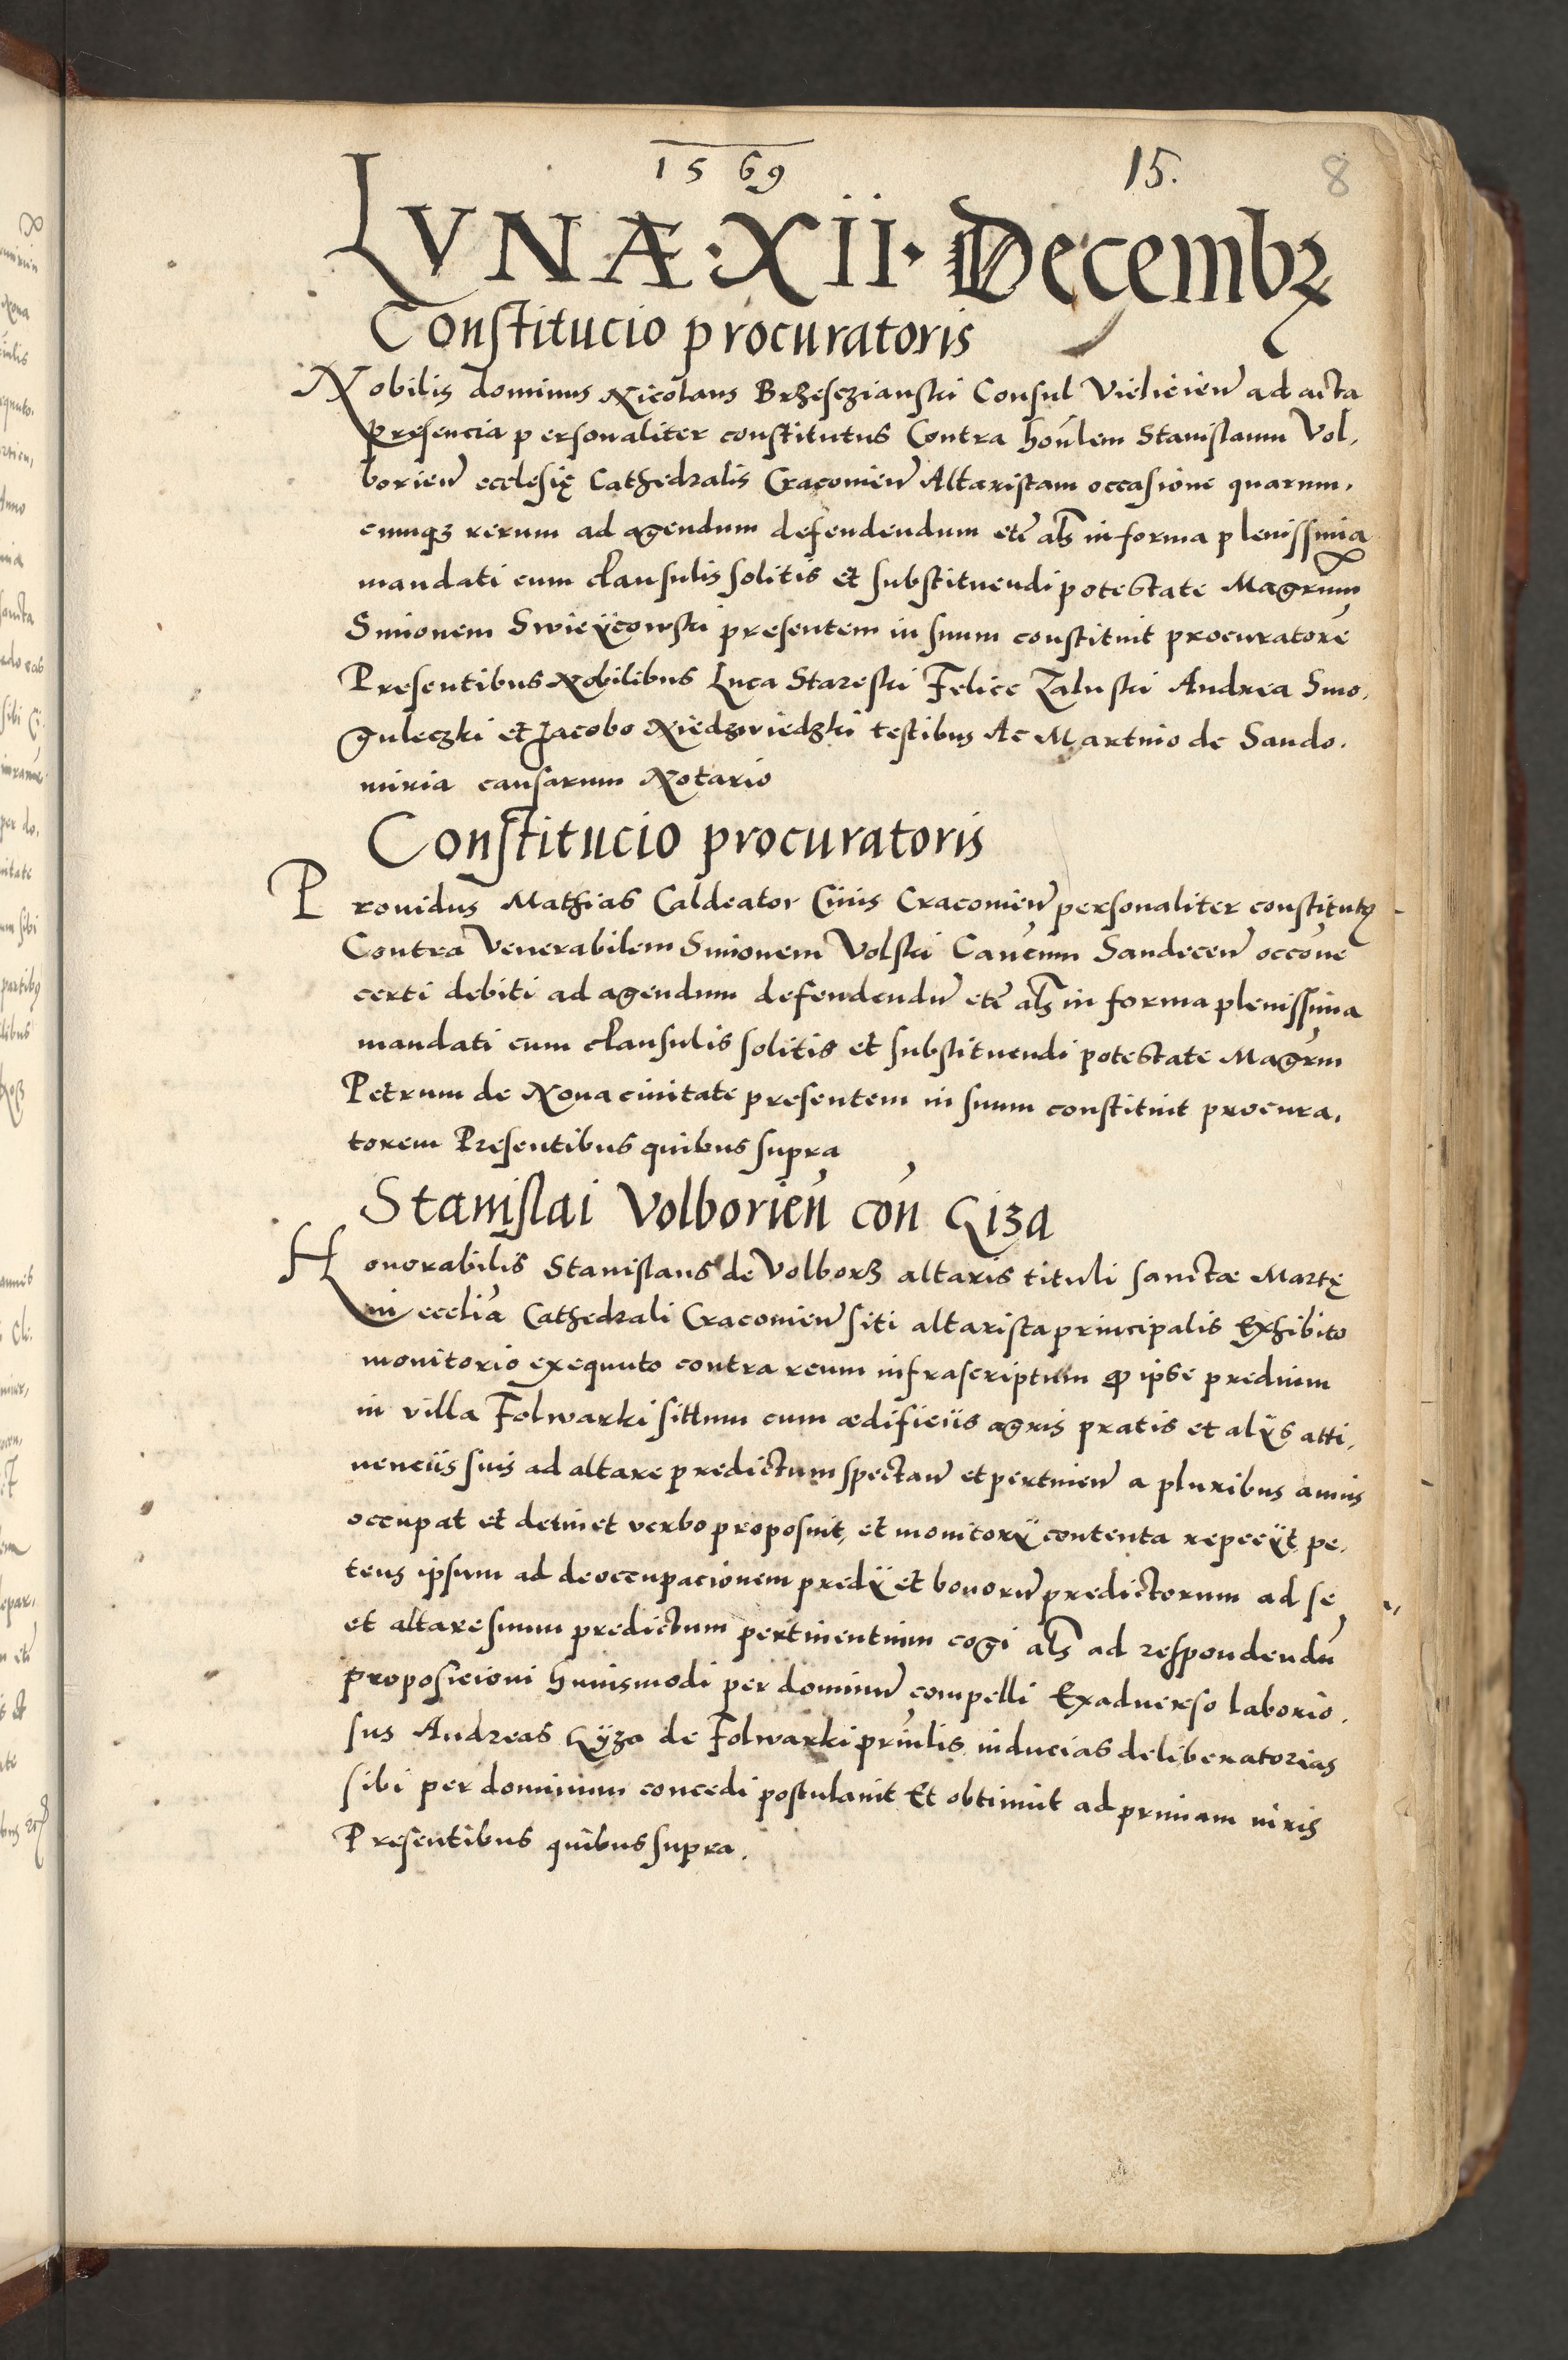 1569 15. 8
LVNÆ · XII · Decembꝝ
Constitucio procuratoris
Nobilis dominus Nicolaus Brzesczianski Consul Vielicień ad acta
presencia personaliter constitutus Contra honlem Stanislaum Vol,
borień ecclesię Cathedralis Cracovień Altaristam occasione quarum,
cunqꝫ rerum ad agendum defendendum etc̄ als in forma plenissima
mandati cum clausulis solitis et substituendi potestate Magrum
Simonem Swieÿcowski presentem in suum constituit procuratorē
Presentibus Nobilibus Luca Stareski Felice Zaluski Andrea Smo,
guleczki et Jacobo Niedzwiedzki testibus Ac Martino de Sando,
miria causarum Notario
Constitucio procuratoris
Prouidus Mathias Caldeator Ciuis Cracouień personaliter constitutꝰ
Contra Venerabilem Simonem Volski Cancum Sandecen̄ occōne
certi debiti ad agendum defendendū etc̄ als in forma plenissima
mandati cum clausulis solitis et substituendi potestate Magrm
Petrum de Noua ciuitate presentem in suum constituit procura,
torem Presentibus quibus supra
Stanislai Volborień con̄ Giza
Honorabilis Stanislaus de Volborz altaris tituli sanctæ Martę
in ecclia Cathedrali Cracouień siti altarista principalis Exhibito
monitorio exequuto contra reum infrascriptum ꝙ ipse predium
in villa Folwarki situm cum ædificiis agris pratis et alÿs atti,
nenciis suis ad altare predictum spectań et pertinēn a pluribus annis
occupat et detinet verbo proposuit, et monitorÿ contenta repecÿt pe,
tens ipsum ad deoccupacionem predÿ et bonorū predictorum ad se
et altare suum predictum pertinentium cogi als ad respondendū
proposicioni huiusmodi per dominū compelli Exaduerso laborio,
sus Andreas Gÿza de Folwarki prinlis inducias deliberatorias
sibi per dominum concedi postulauit Et obtinuit ad primam iuris
Presentibus quibus supra.